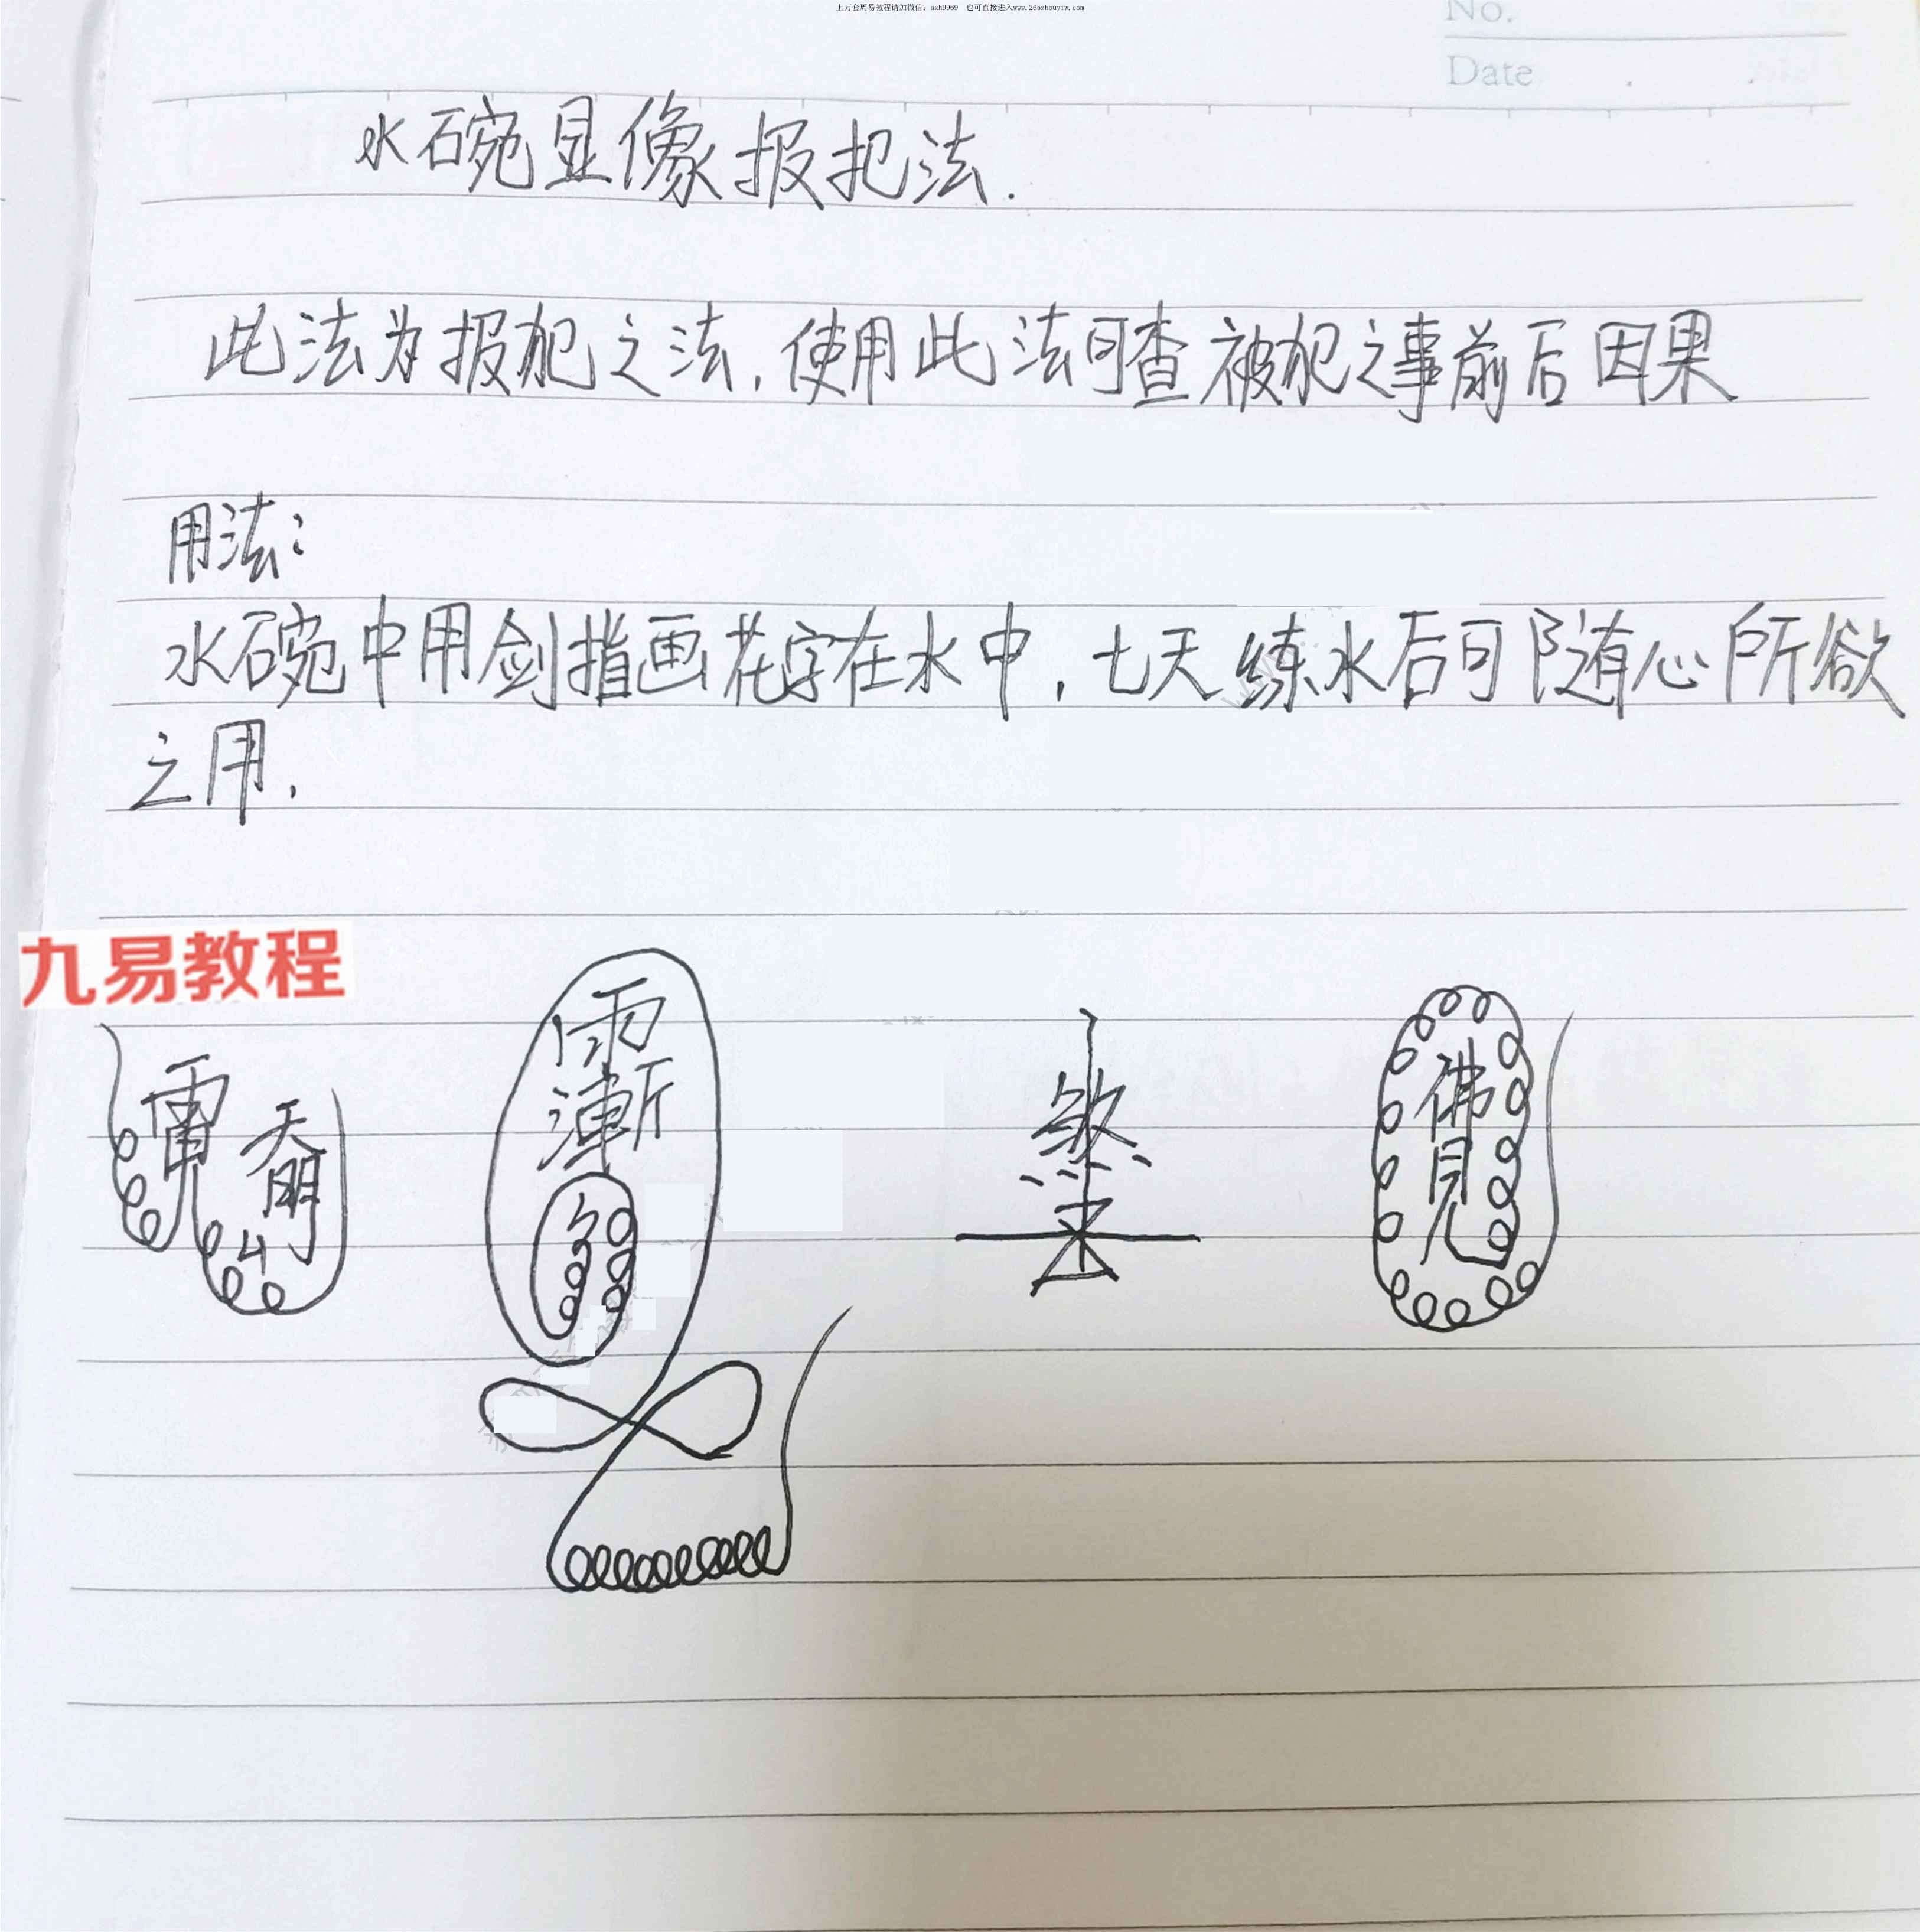 上万套周易教程请加微信：azh9969 也可直接进入www.265zhouyiw.com
No.
Date
水碗显像报把法.
此法为报犯之法,使用此法可查被犯之事前后因果
用法:
水碗中用剑指画花字在水中,七天练水后可随心所欲
之用.
九易教程
天
雨漸
煞
佛見